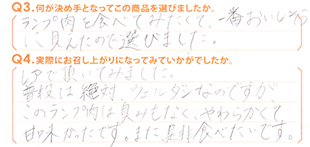 Q3.何が決め手となってこの商品を選びましたか。
ランプ肉を食べてみたくて、一番おいしそう
に見えたので選びました。
Q4.実際にお召し上がりになってみていかがでしたか。
レアで頂いてみました。
普段は絶対、ウェルダンなのですが、
このランプ肉は臭みもなく、やわらかくて
甘味かったです。また是非食べたいです。